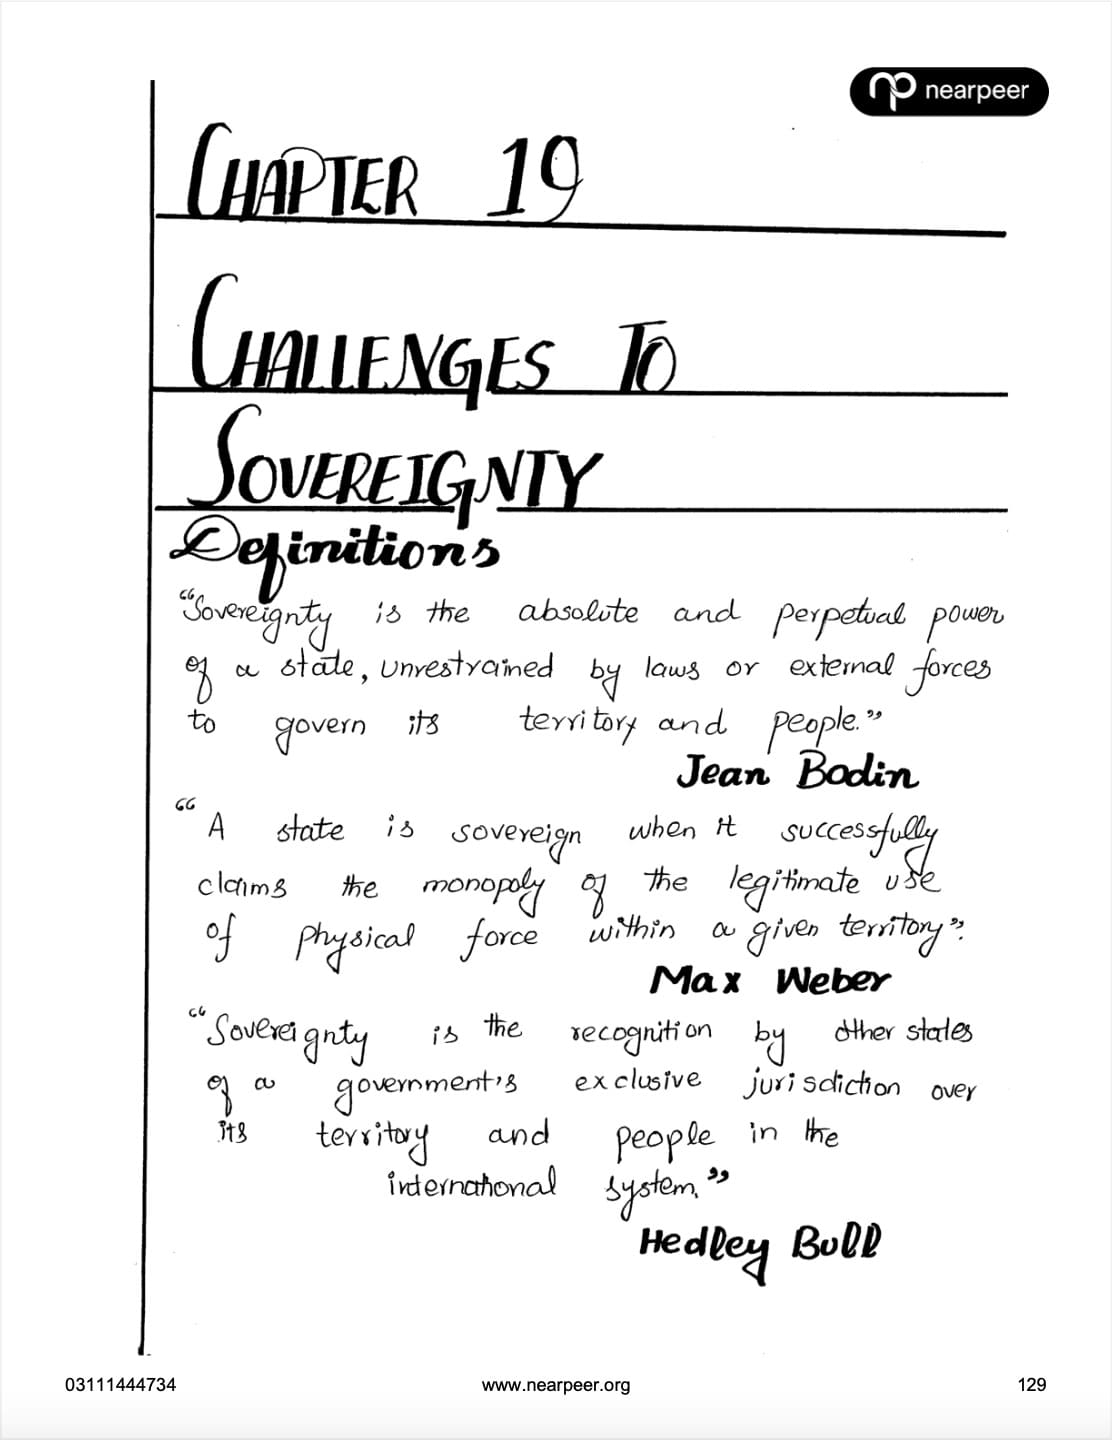 nearpeer
CHAPTER 19
CHALLENGES TO
SOVEREIGNTY
Definitions
“Sovereignty is the absolute and perpetual power
of a state, unrestrained by laws or external forces
to govern its territory and people.”
Jean Bodin
“A state is sovereign when it successfully
claims the monopoly of the legitimate use
of physical force within a given territory”.
Max Weber
“Sovereignty is the recognition by other states
of a government's exclusive jurisdiction over
its territory and people in the
international system.”
Hedley Bull
03111444734 www.nearpeer.org 129